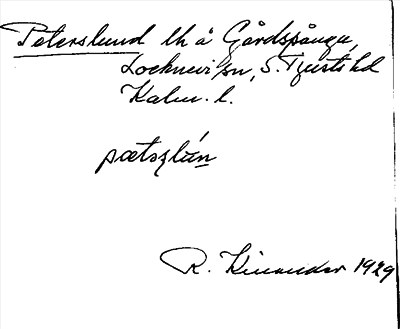 Peterslund lh å Gårdspånga,
Locknevi sn, S. Tjusts hd
Kalm. l.
pætəʂlún
R. Kinander 1929